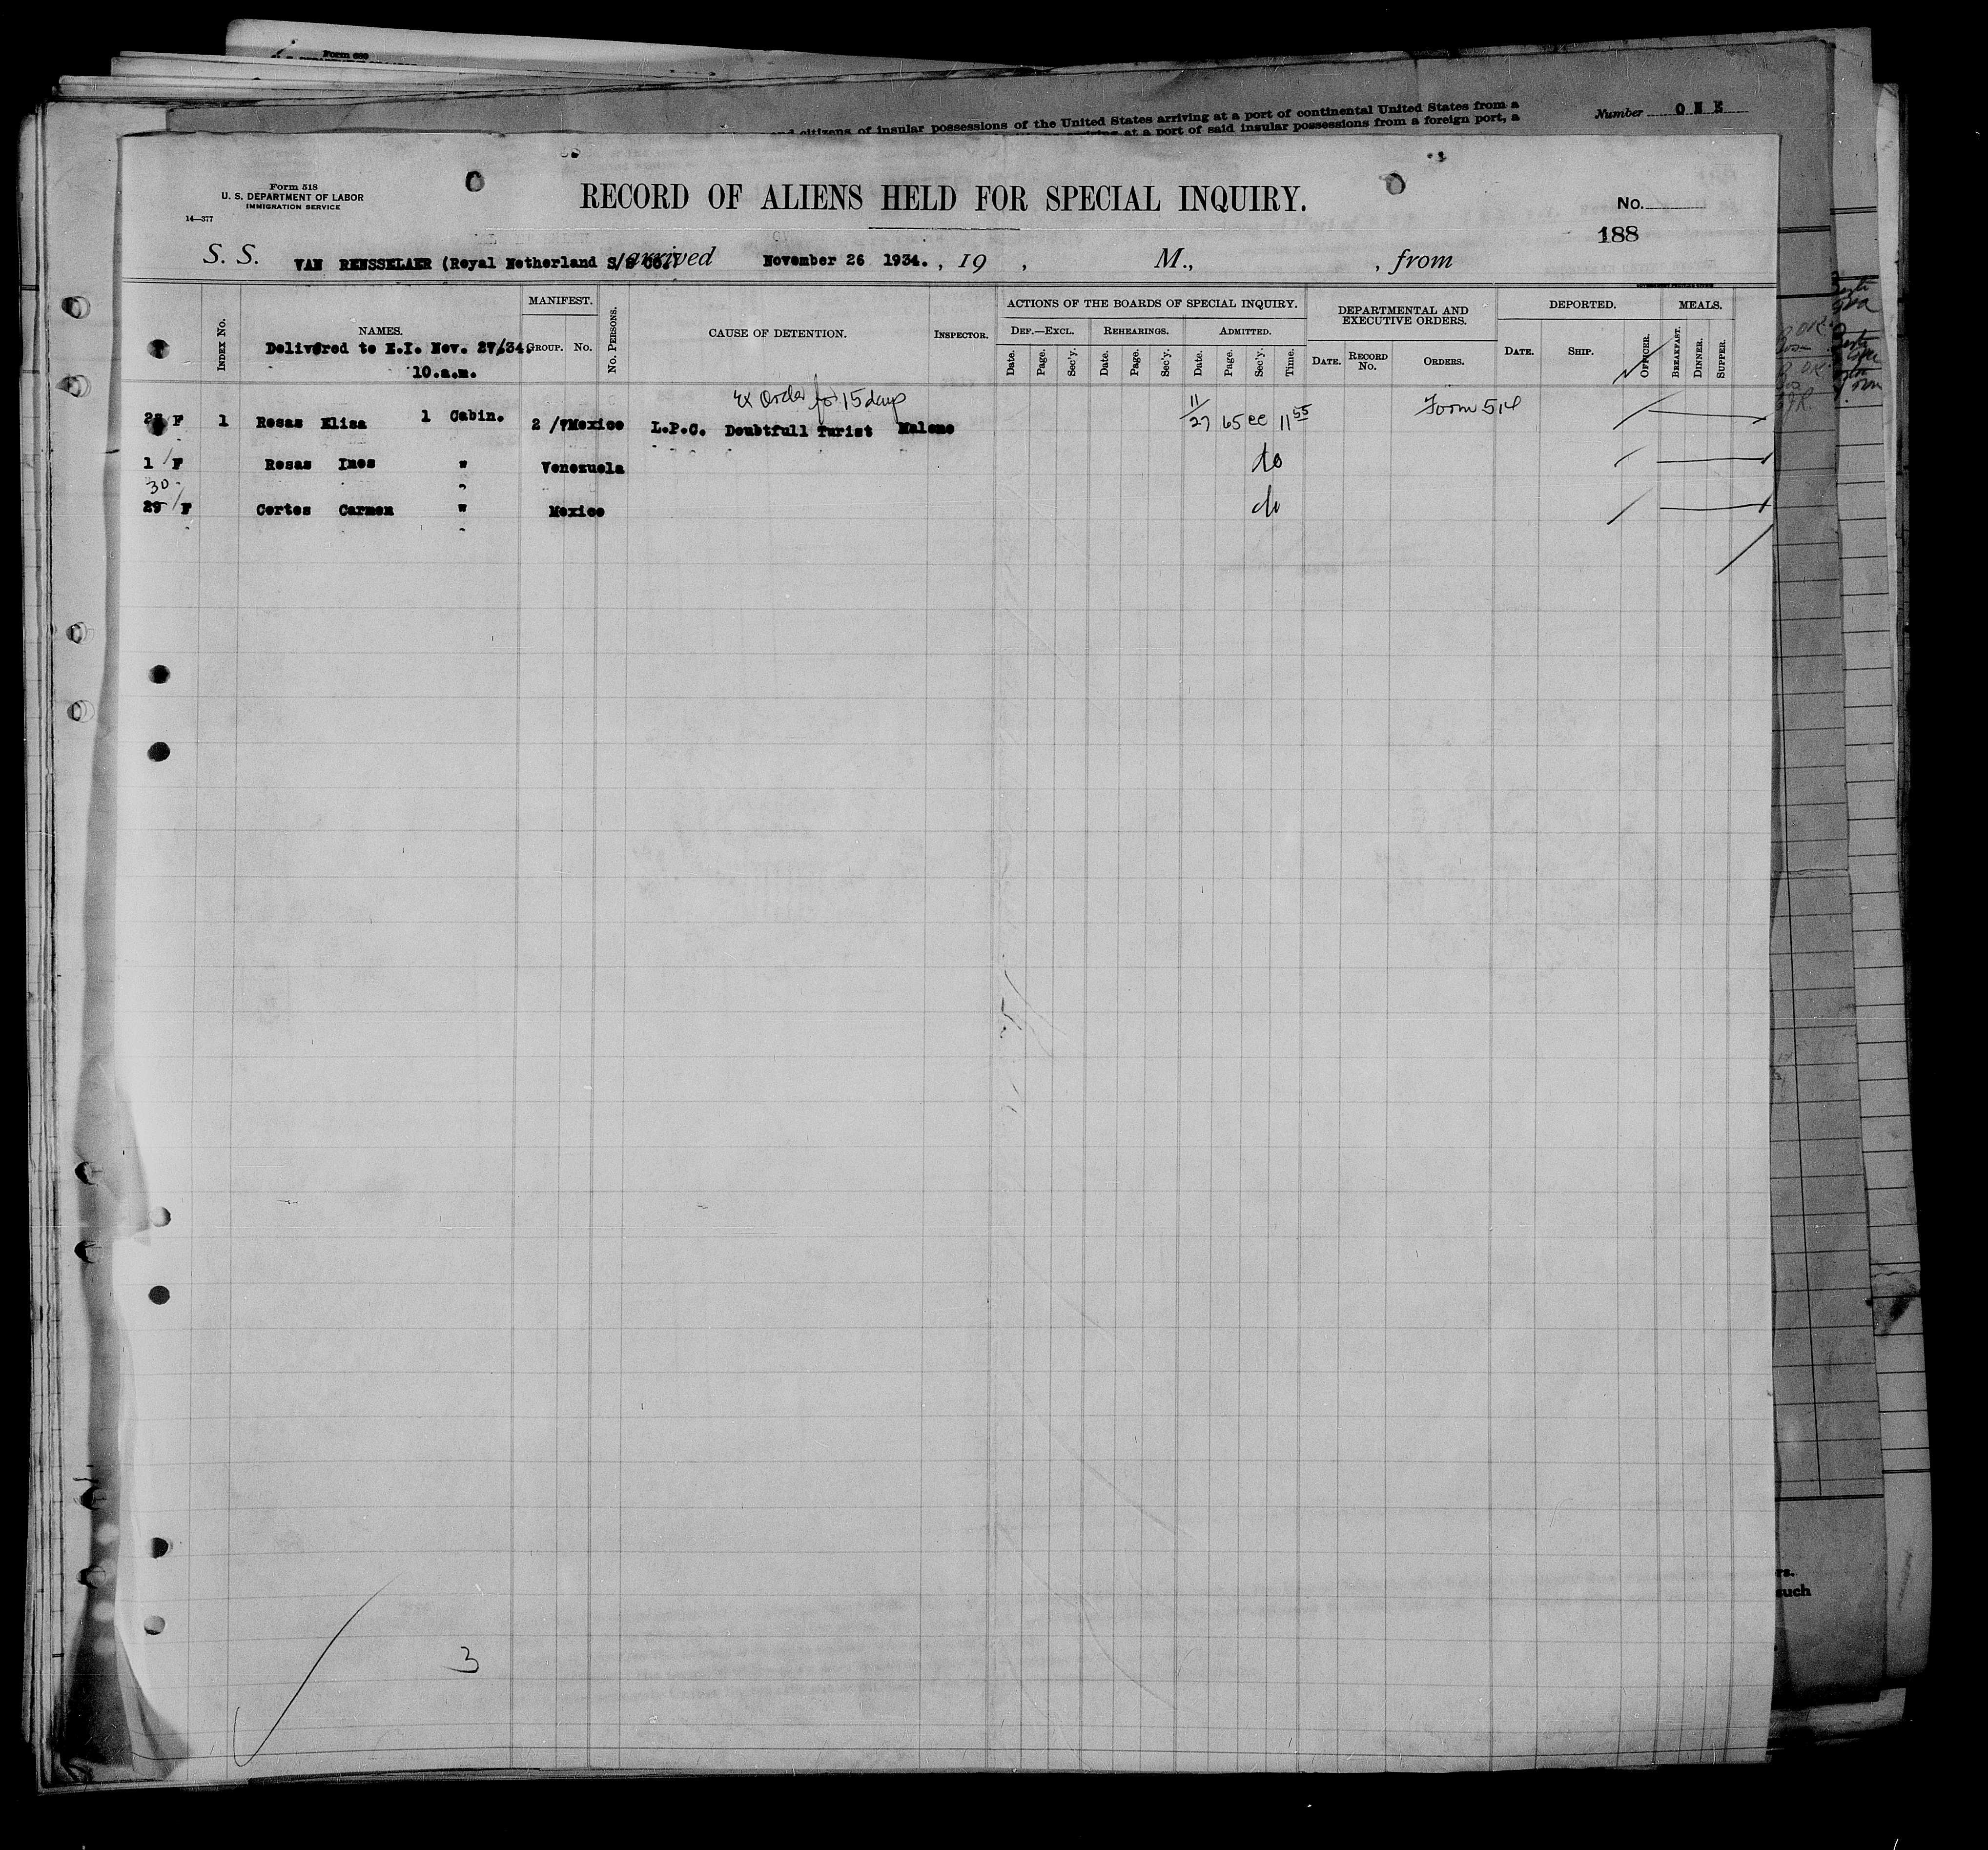 Form 680
and citizens of insular possessions of the United States arriving at a port of continental United States from a
at a port of said insular possessions from a foreign port, a
Number ONE
Form 518
U. S. DEPARTMENT OF LABOR
IMMIGRATION SERVICE
14—377
RECORD OF ALIENS HELD FOR SPECIAL INQUIRY.
No.
188
S. S. VAN RENSSELAER (Royal Netherland S/S Co. arrived November 26 1934. , 19 , M., , from
INDEX No.
NAMES.
Delivered to E.I. Nov. 27/34.
10.a.m.
MANIFEST.
GROUP. No.
No. PERSONS.
CAUSE OF DETENTION.
INSPECTOR.
ACTIONS OF THE BOARDS OF SPECIAL INQUIRY.
DEF.—EXCL. REHEARINGS. ADMITTED.
Date. Page. Sec'y. Date. Page. Sec'y. Date. Page. Sec'y. Time.
DEPARTMENTAL AND
EXECUTIVE ORDERS.
DATE. RECORD No. ORDERS.
DEPORTED.
DATE. SHIP. OFFICER.
MEALS.
BREAKFAST. DINNER. SUPPER.
Ex Order for 15 days
F 1 Rosas Elisa 1 Cabin. 2 /7 Mexico L.P.C. Doubtfull Turist Malone 11/27 65 ec 11 55 Form 514
1 / F Rosas Ines " Venezuela do
30
29 / F Cortes Carmen " Mexico do
3
rs.
such